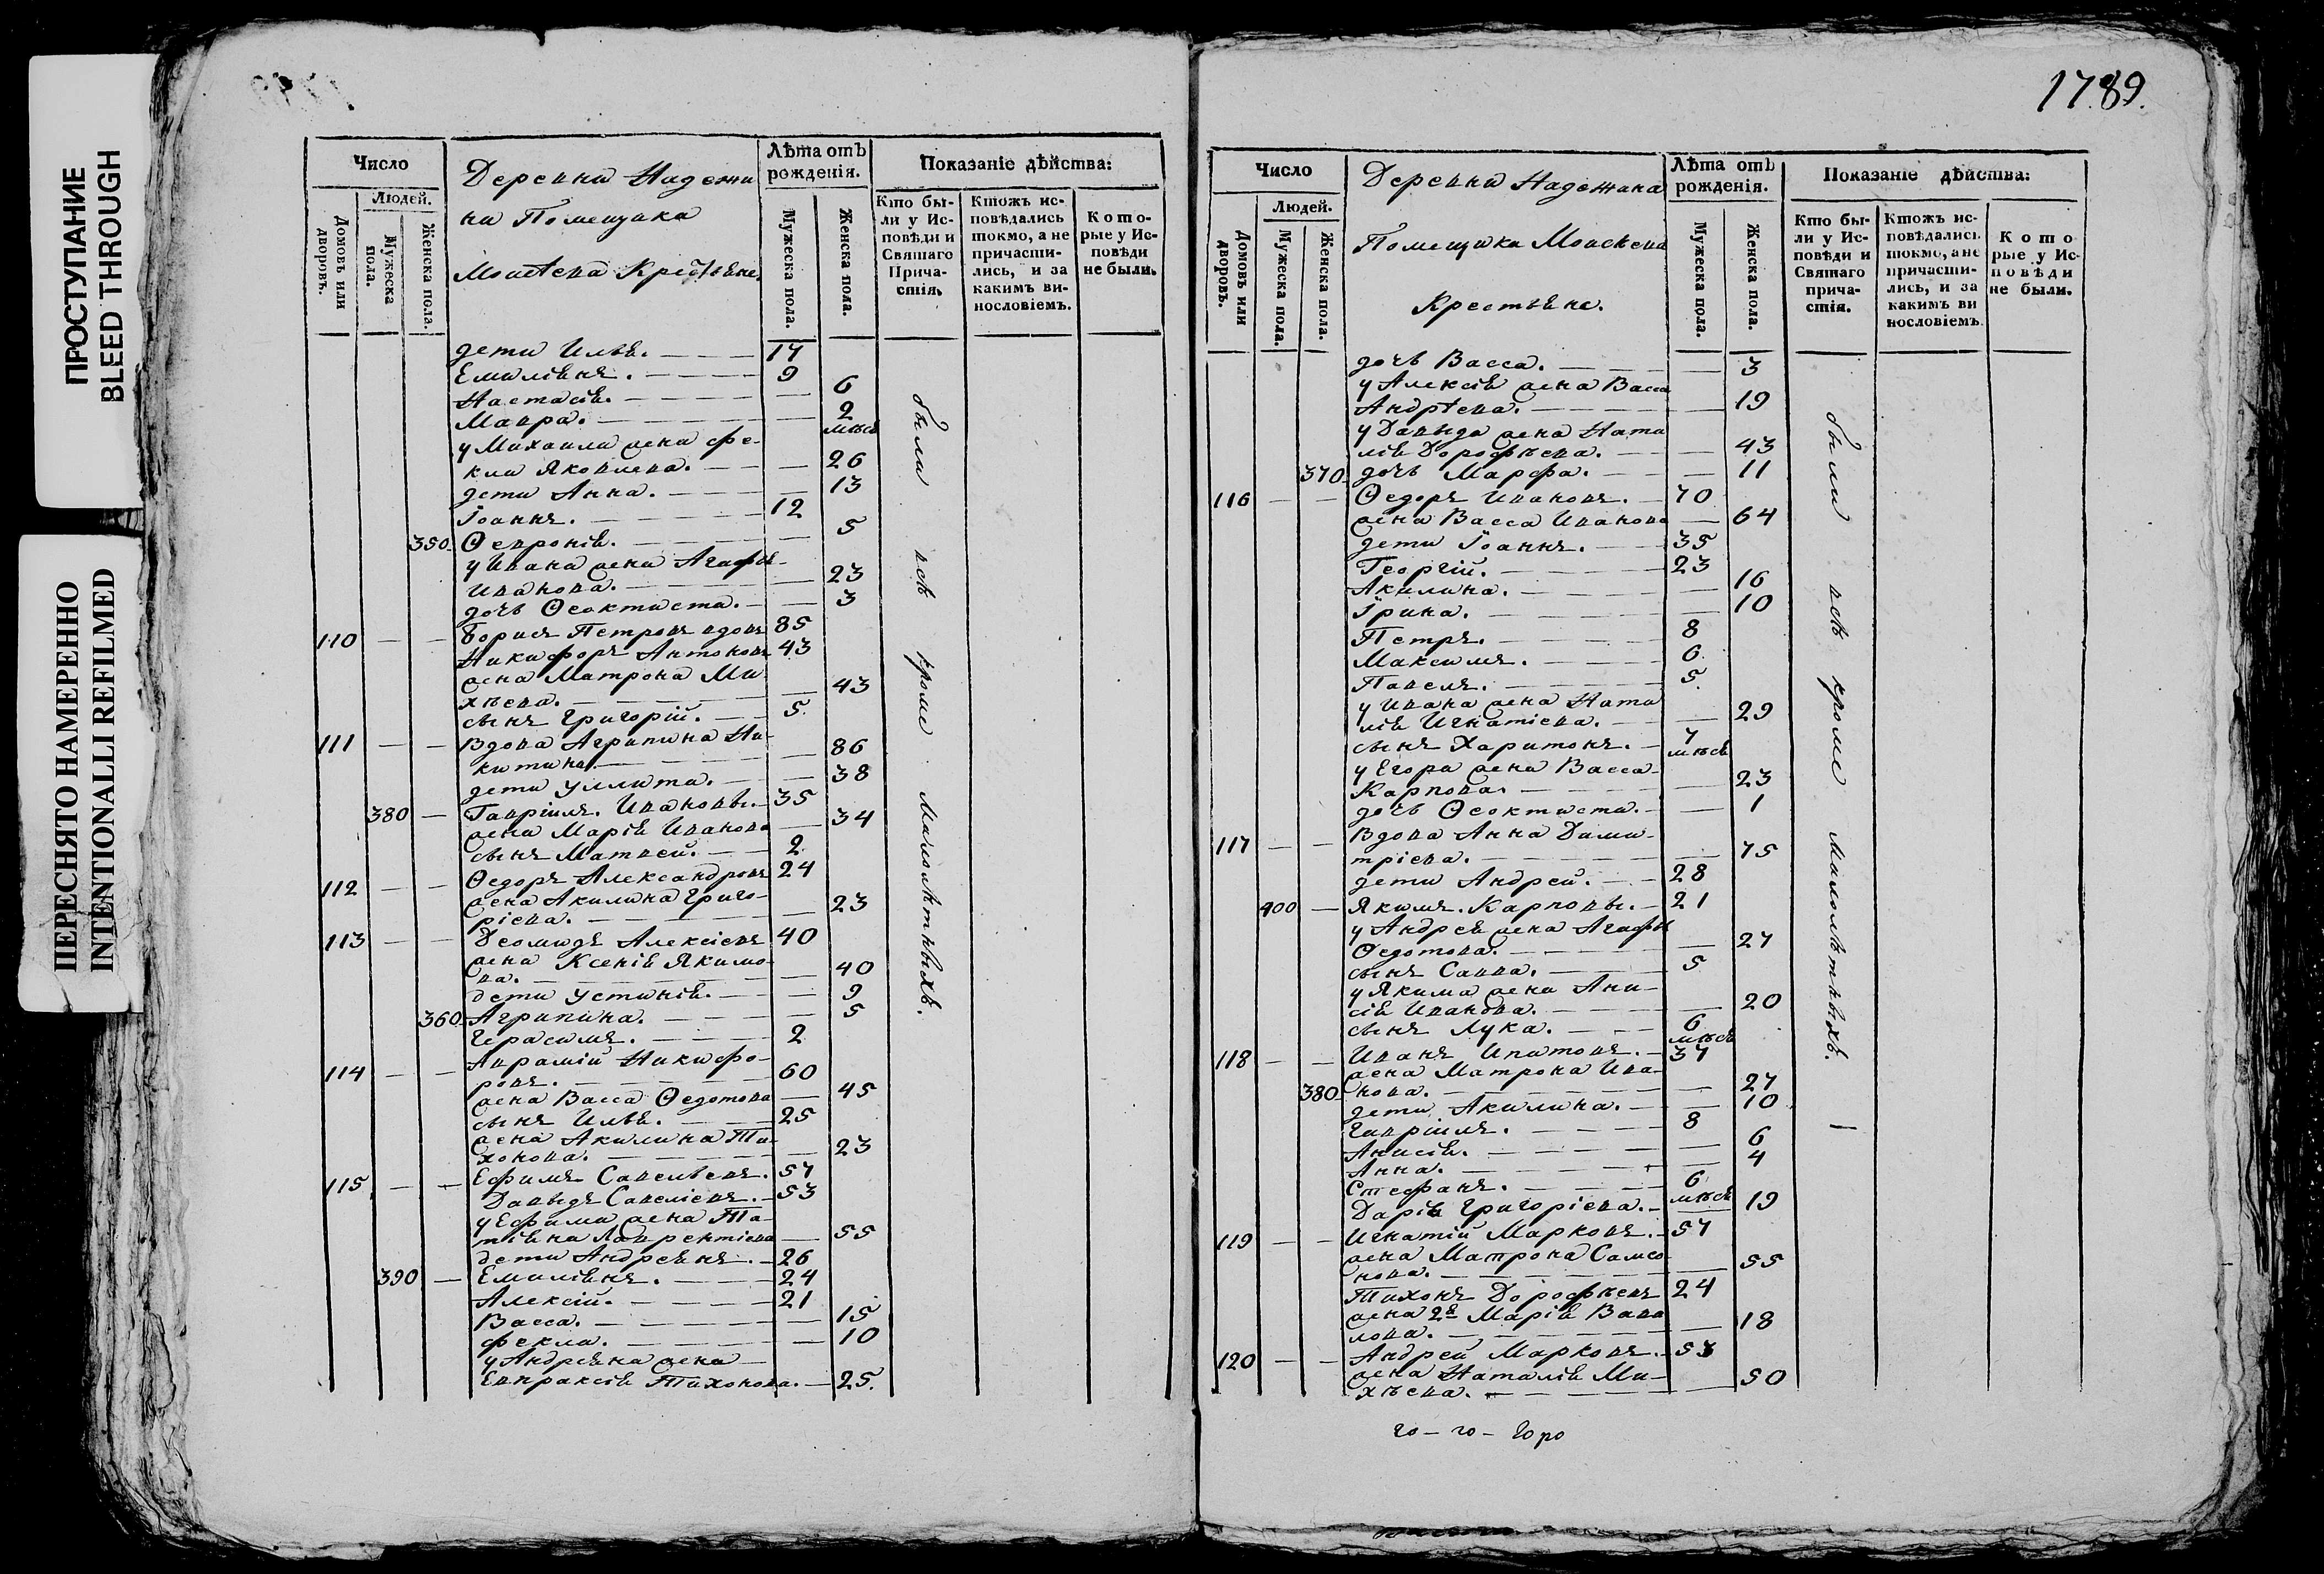 ПРОСТУПАНИЕ
BLEED THROUGH
ПЕРЕСНЯТО НАМЕРЕННО
INTENTIONALLI REFILMED
Число
Людей.
Домовъ или дворовъ.
Мужеска пола.
Женска пола.
Деревни Надежи
ни Помещика
Моисѣева Крестьяне.
Лѣта отъ рожденія.
Мужеска пола.
Женска пола.
Показаніе дѣйства:
Кто бы-
ли у Ис-
повѣди и
Святаго
Прича-
стія.
Ктожъ ис-
повѣдались
токмо, а не
причасти-
лись, и за
какимъ ви-
нословіемъ.
Кото-
рые у Ис-
повѣди
не были.
дети Илья. 17
Емиліянъ. 9
Настасія. 6
Мавра. 2 мѣся
у Михаила жена Фе-
кла Яковлева. 26
дети Анна. 13
Іоаннъ. 12
350 Ѳевронія. 5
у Ивана жена Агафья
Иванова. 23
дочь Ѳеоктиста. 3
110 Борисъ Петровъ вдовъ 85
Никифоръ Антоновъ 43
жена Матрона Ми
хѣева. 43
сынъ Григорій. 5.
111 Вдова Агрипина Ни-
китина. 86
дети Улита. 38
380 Гавріилъ. Ивановы. 35
жена Марія Иванова 34
сынъ Матвей. 2
112 Ѳедоръ Александровъ 24
жена Акилина Григо-
ріева. 23
113 Деомидъ Алексіевъ 40
жена Ксенія Якимо
ва. 40
дети Устинія. 9
360 Агрипина. 5
Герасимъ. 2
114 Аврамій Никифо-
ровъ. 60
жена Васса Ѳедотова 45
сынъ Илья. 25
жена Акилина Ти-
хонова. 23
115 Ефимъ Савельевъ. 57
Давыдъ Савеліевъ. 53
у Ефима жена Та-
тіяна Лаврентіева 55
дети Андреянъ. 26
390 Емиліянъ. 24
Алексій. 21
Васса. 15
Фекла. 10
у Андреяна жена
Евпраксія Тихонова. 25.
были всѣ кроме малолѣтныхъ.
1789.
Число
Людей.
Домовъ или дворовъ.
Мужеска пола.
Женска пола.
Деревни Надежина
Помещика Моисѣева
Крестьяне.
Лѣта отъ рожденія.
Мужеска пола.
Женска пола.
Показаніе дѣйства:
Кто бы-
ли у Ис-
повѣди и
Святаго
прича-
стія.
Ктожъ ис-
повѣдались
токмо, а не
причасти-
лись, и за
какимъ ви
нословіемъ.
Кото
рые у Ис-
повѣди
не были.
дочь Васса. 3
у Алексія жена Васса
Андрѣева. 19
у Давыда жена Ната
лія Дорофѣева. 43
370 дочь Марфа. 11
116 Ѳедоръ Ивановъ. 70
жена Васса Иванова 64
дети Іоаннъ. 35
Георгій. 23
Акилина. 16
Ірина. 10
Петръ. 8
Максимъ. 6.
Павелъ. 5.
у Ивана жена Ната
лія Игнатіева. 29
сынъ Харитонъ. 7 мѣся
у Егора жена Васса
Карпова. 23
дочь Ѳеоктиста. 1
117 Вдова Анна Дими-
тріева. 75
дети Андрей. 28
400 Якимъ. Карповы. 21
у Андрея жена Агафья
Ѳедотова. 27
сынъ Савва. 5
у Якима жена Ани-
сія Иванова. 20
сынъ Лука. 6 мѣся
118 Иванъ Ипатовъ. 37
жена Матрона Ива-
380 нова. 27
дети Акилина. 10
Гавріилъ. 8
Анисія. 6
Анна. 4
Стефанъ. 6 мѣся
Дарія Григоріева. 19
119 Игнатій Марковъ. 57
жена Матрона Самсо
нова. 55
Тихонъ Дорофѣевъ 24
жена 2я Марія Вави
лова. 18
120 Андрей Марковъ. 53
жена Наталія Ми-
хѣева. 50
были всѣ кроме малолѣтныхъ.